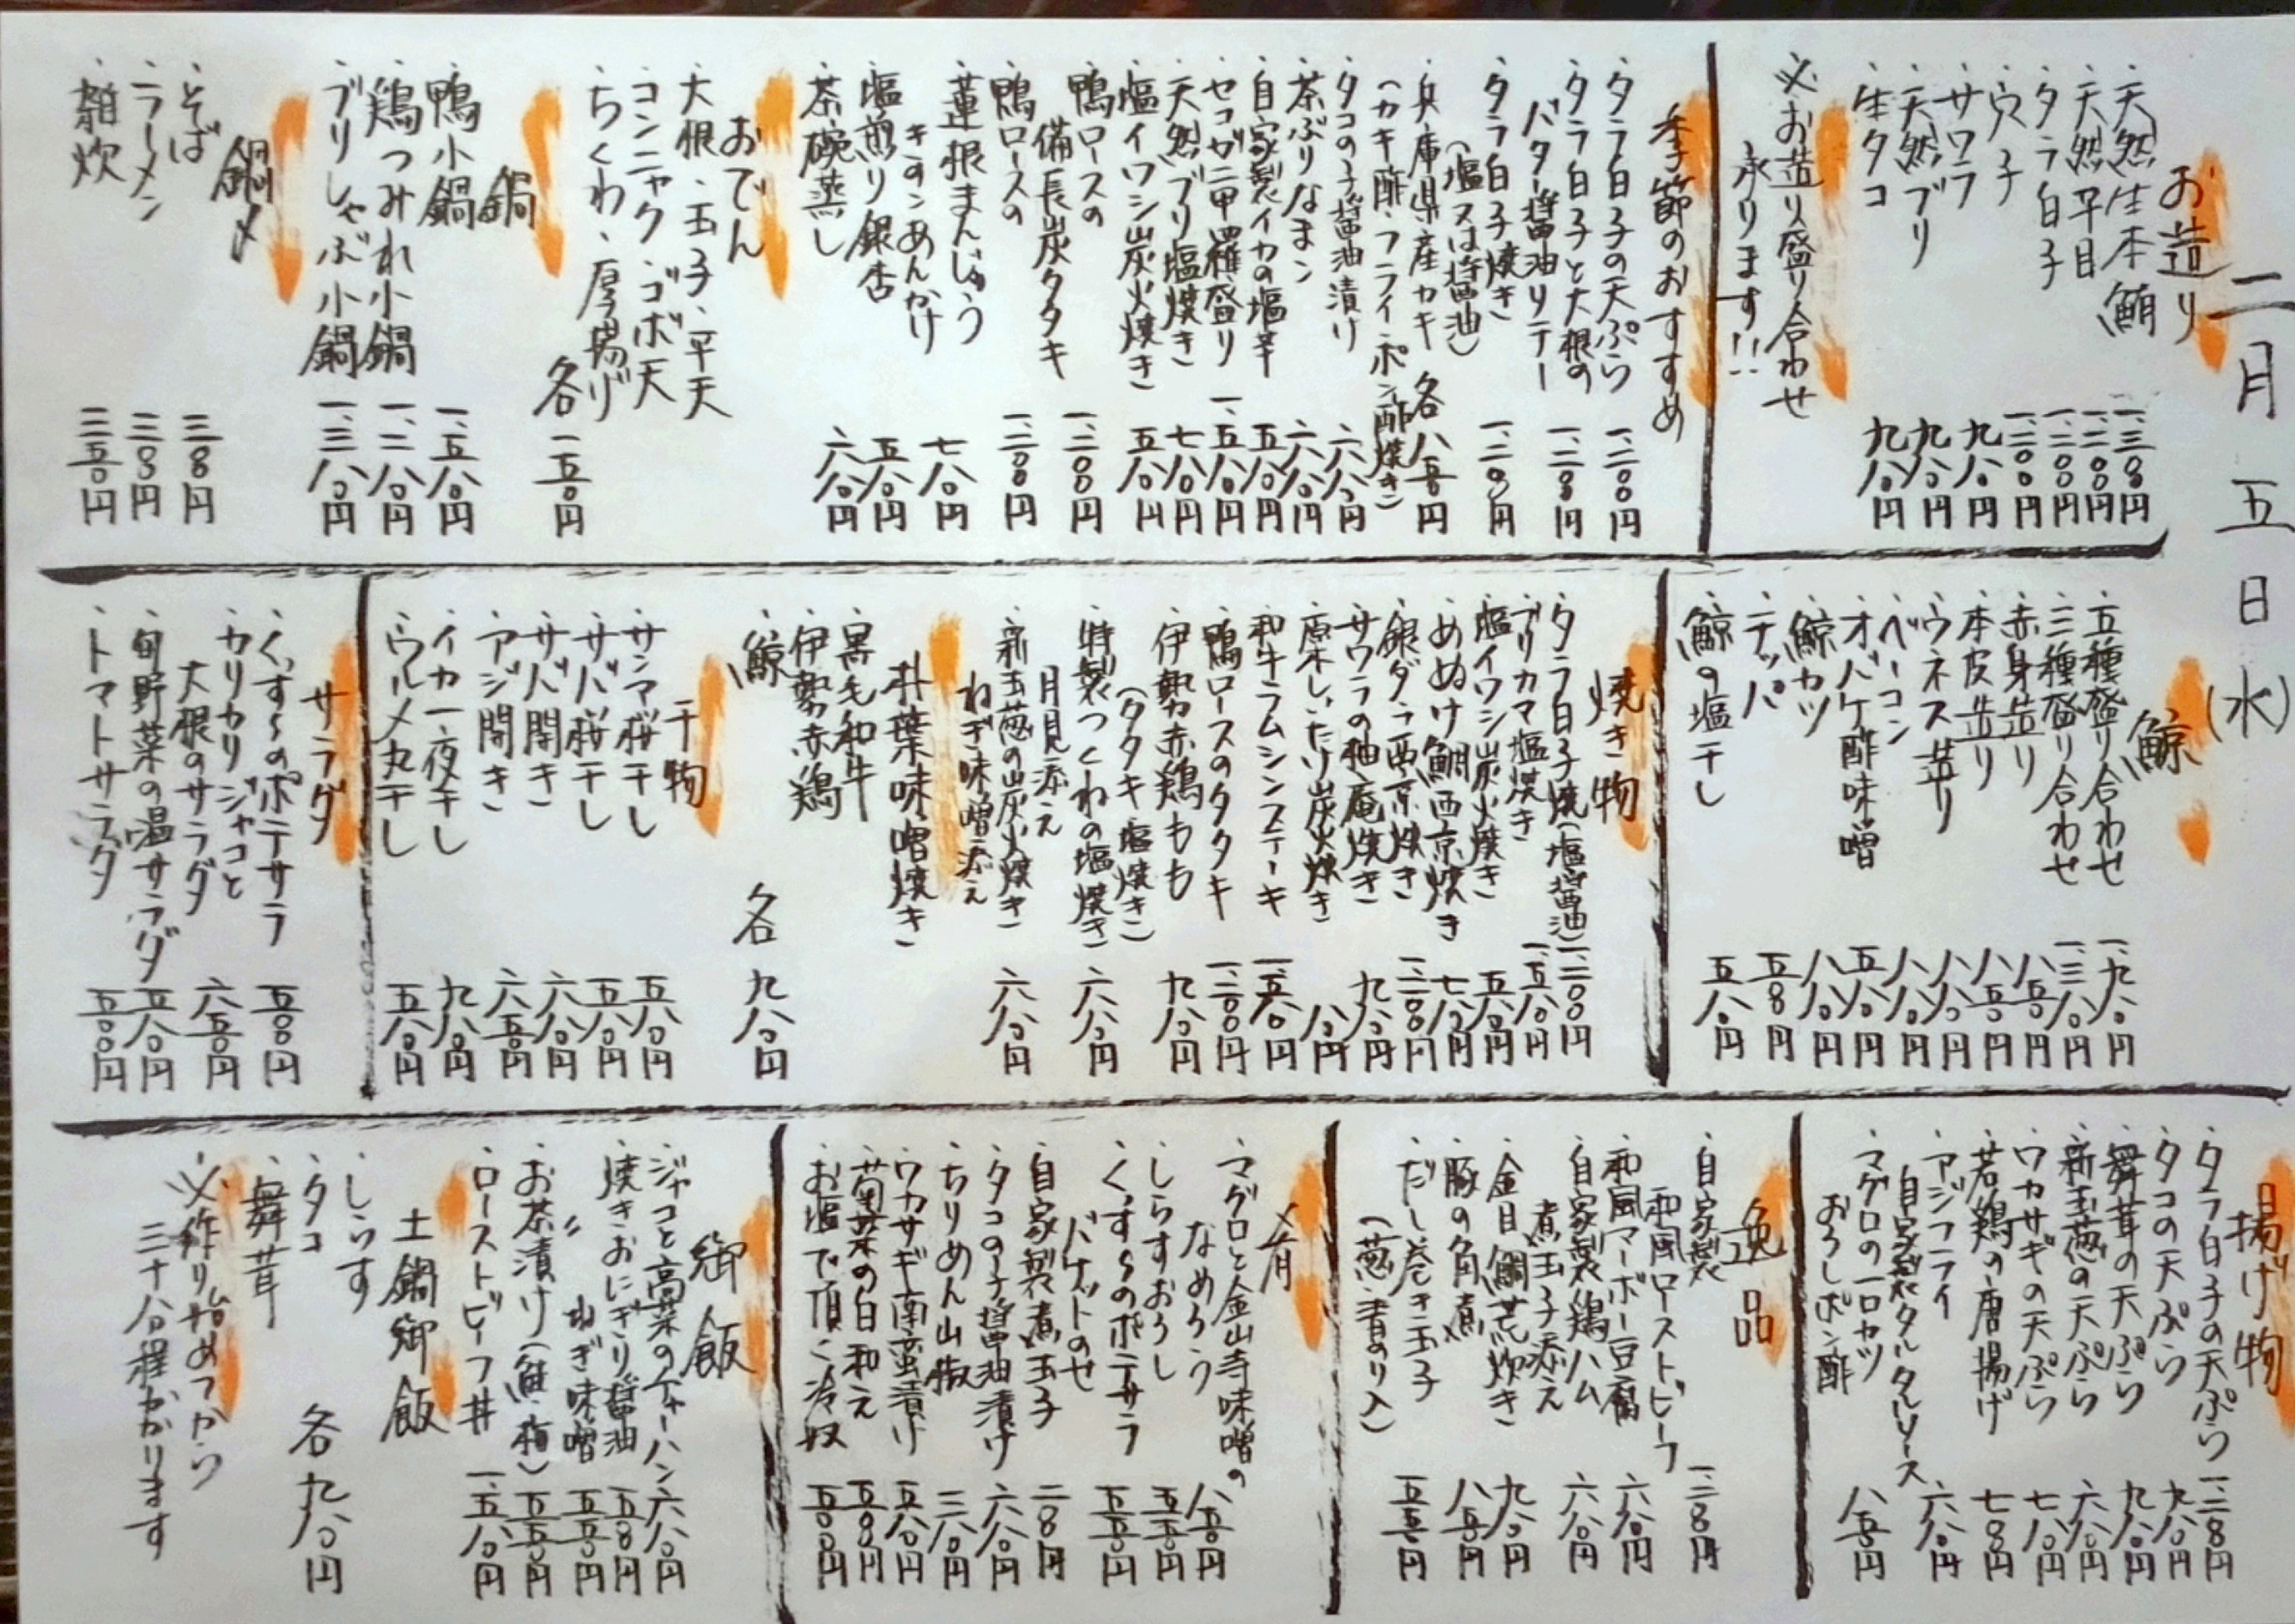 二月五日(水)
お造り
・天然生本鮪 一、三〇〇円
・天然平目 一、二〇〇円
・タラ白子 一、二〇〇円
・ウニ 一、二〇〇円
・サワラ 九八〇円
・天然ブリ 九八〇円
・生タコ 九八〇円
※お造り盛り合わせ
承ります!!
季節のおすすめ
・タラ白子の天ぷら 一、二〇〇円
・タラ白子と大根の
バター醤油ソテー 一、二〇〇円
・タラ白子焼き
(塩又は醤油) 一、二〇〇円
・兵庫県産カキ 各八五〇円
(カキ酢・フライ・ポン酢焼き)
・タコの子醤油漬け 六八〇円
・茶ぶりなまこ 六八〇円
・自家製イカの塩辛 五八〇円
・セコガニ甲羅盛り 一、五八〇円
・天然ブリ塩焼き 七八〇円
・塩イワシ炭火焼き 五八〇円
・鴨ロースの
備長炭タタキ 一、二〇〇円
・鴨ロースの 一、二〇〇円
・蓮根まんじゅう
きのこあんかけ 七八〇円
・塩煎り銀杏 五八〇円
・茶碗蒸し 六八〇円
おでん
・大根・玉子・平天
・コンニャク・ゴボ天
・ちくわ・厚揚げ
各一五〇円
鍋
・鴨小鍋 一、五八〇円
・鶏つみれ小鍋 一、二八〇円
・ブリしゃぶ小鍋 一、三八〇円
鍋〆
・そば 三〇〇円
・ラーメン 三〇〇円
・雑炊 三五〇円
鯨
・五種盛り合わせ 一、九八〇円
・三種盛り合わせ 一、三八〇円
・赤身造り 八五〇円
・本皮造り 八五〇円
・ウネス造り 八八〇円
・ベーコン 八八〇円
・オバケ酢味噌 五八〇円
・鯨カツ 八八〇円
・テッパ 五〇〇円
・鯨の塩干し 五八〇円
焼き物
・タラ白子焼(塩・醤油) 一、二〇〇円
・ブリカマ塩焼き 一、五八〇円
・塩イワシ炭火焼き 五八〇円
・めぬけ鯛西京焼き 七八〇円
・銀ダラ西京焼き 一、二〇〇円
・サワラの柚庵焼き 九八〇円
・原木しいたけ炭火焼き 八〇円
・和牛ラムシンステーキ 一、五八〇円
・鴨ロースのタタキ 一、二〇〇円
・伊勢赤鶏もも
(タタキ・塩焼き) 九八〇円
・特製つくねの塩焼き
月見添え 六八〇円
・新玉葱の炭火焼き
ねぎ味噌添え 六八〇円
朴葉味噌焼き
・黒毛和牛
・伊勢赤鶏
・鯨
各九八〇円
干物
・サンマ桜干し 五八〇円
・サバ桜干し 五八〇円
・サバ開き 六八〇円
・アジ開き 六五〇円
・イカ一夜干し 九八〇円
・ウルメ丸干し 五八〇円
サラダ
・くす〜のポテサラ 五〇〇円
・カリカリジャコと
大根のサラダ 六五〇円
・旬野菜の温サラダ 五八〇円
・トマトサラダ 五〇〇円
揚げ物
・タラ白子の天ぷら 一、二〇〇円
・タコの天ぷら 九八〇円
・舞茸の天ぷら 九八〇円
・新玉葱の天ぷら 六八〇円
・ワカサギの天ぷら 七八〇円
・若鶏の唐揚げ 七〇〇円
・アジフライ
自家製タルタルソース 六八〇円
・マグロの一口カツ
おろしポン酢 八五〇円
逸品
・自家製
和風ローストビーフ 一、二〇〇円
・和風マーボー豆腐 六八〇円
・自家製鶏ハム
煮玉子添え 六八〇円
・金目鯛荒炊き 九八〇円
・豚の角煮 八五〇円
・だし巻き玉子
(葱・青のり入) 五五〇円
〆肴
・マグロと金山寺味噌の
なめろう 八五〇円
・しらすおろし 五五〇円
・くす〜のポテサラ
バケットのせ 五五〇円
・自家製煮玉子 二〇〇円
・タコの子醤油漬け 六八〇円
・ちりめん山椒 三八〇円
・ワカサギ南蛮漬け 五八〇円
・菊菜の白和え 五〇〇円
・お塩で頂く冷奴 五〇〇円
御飯
・ジャコと高菜のチャーハン 六八〇円
・焼きおにぎり醤油 五〇〇円
〃 ねぎ味噌 五五〇円
・お茶漬け(鮭・梅) 五五〇円
・ローストビーフ丼 一、五八〇円
土鍋御飯
・しらす
・タコ
・舞茸
各九八〇円
※作り始めてから
三十分程かかります